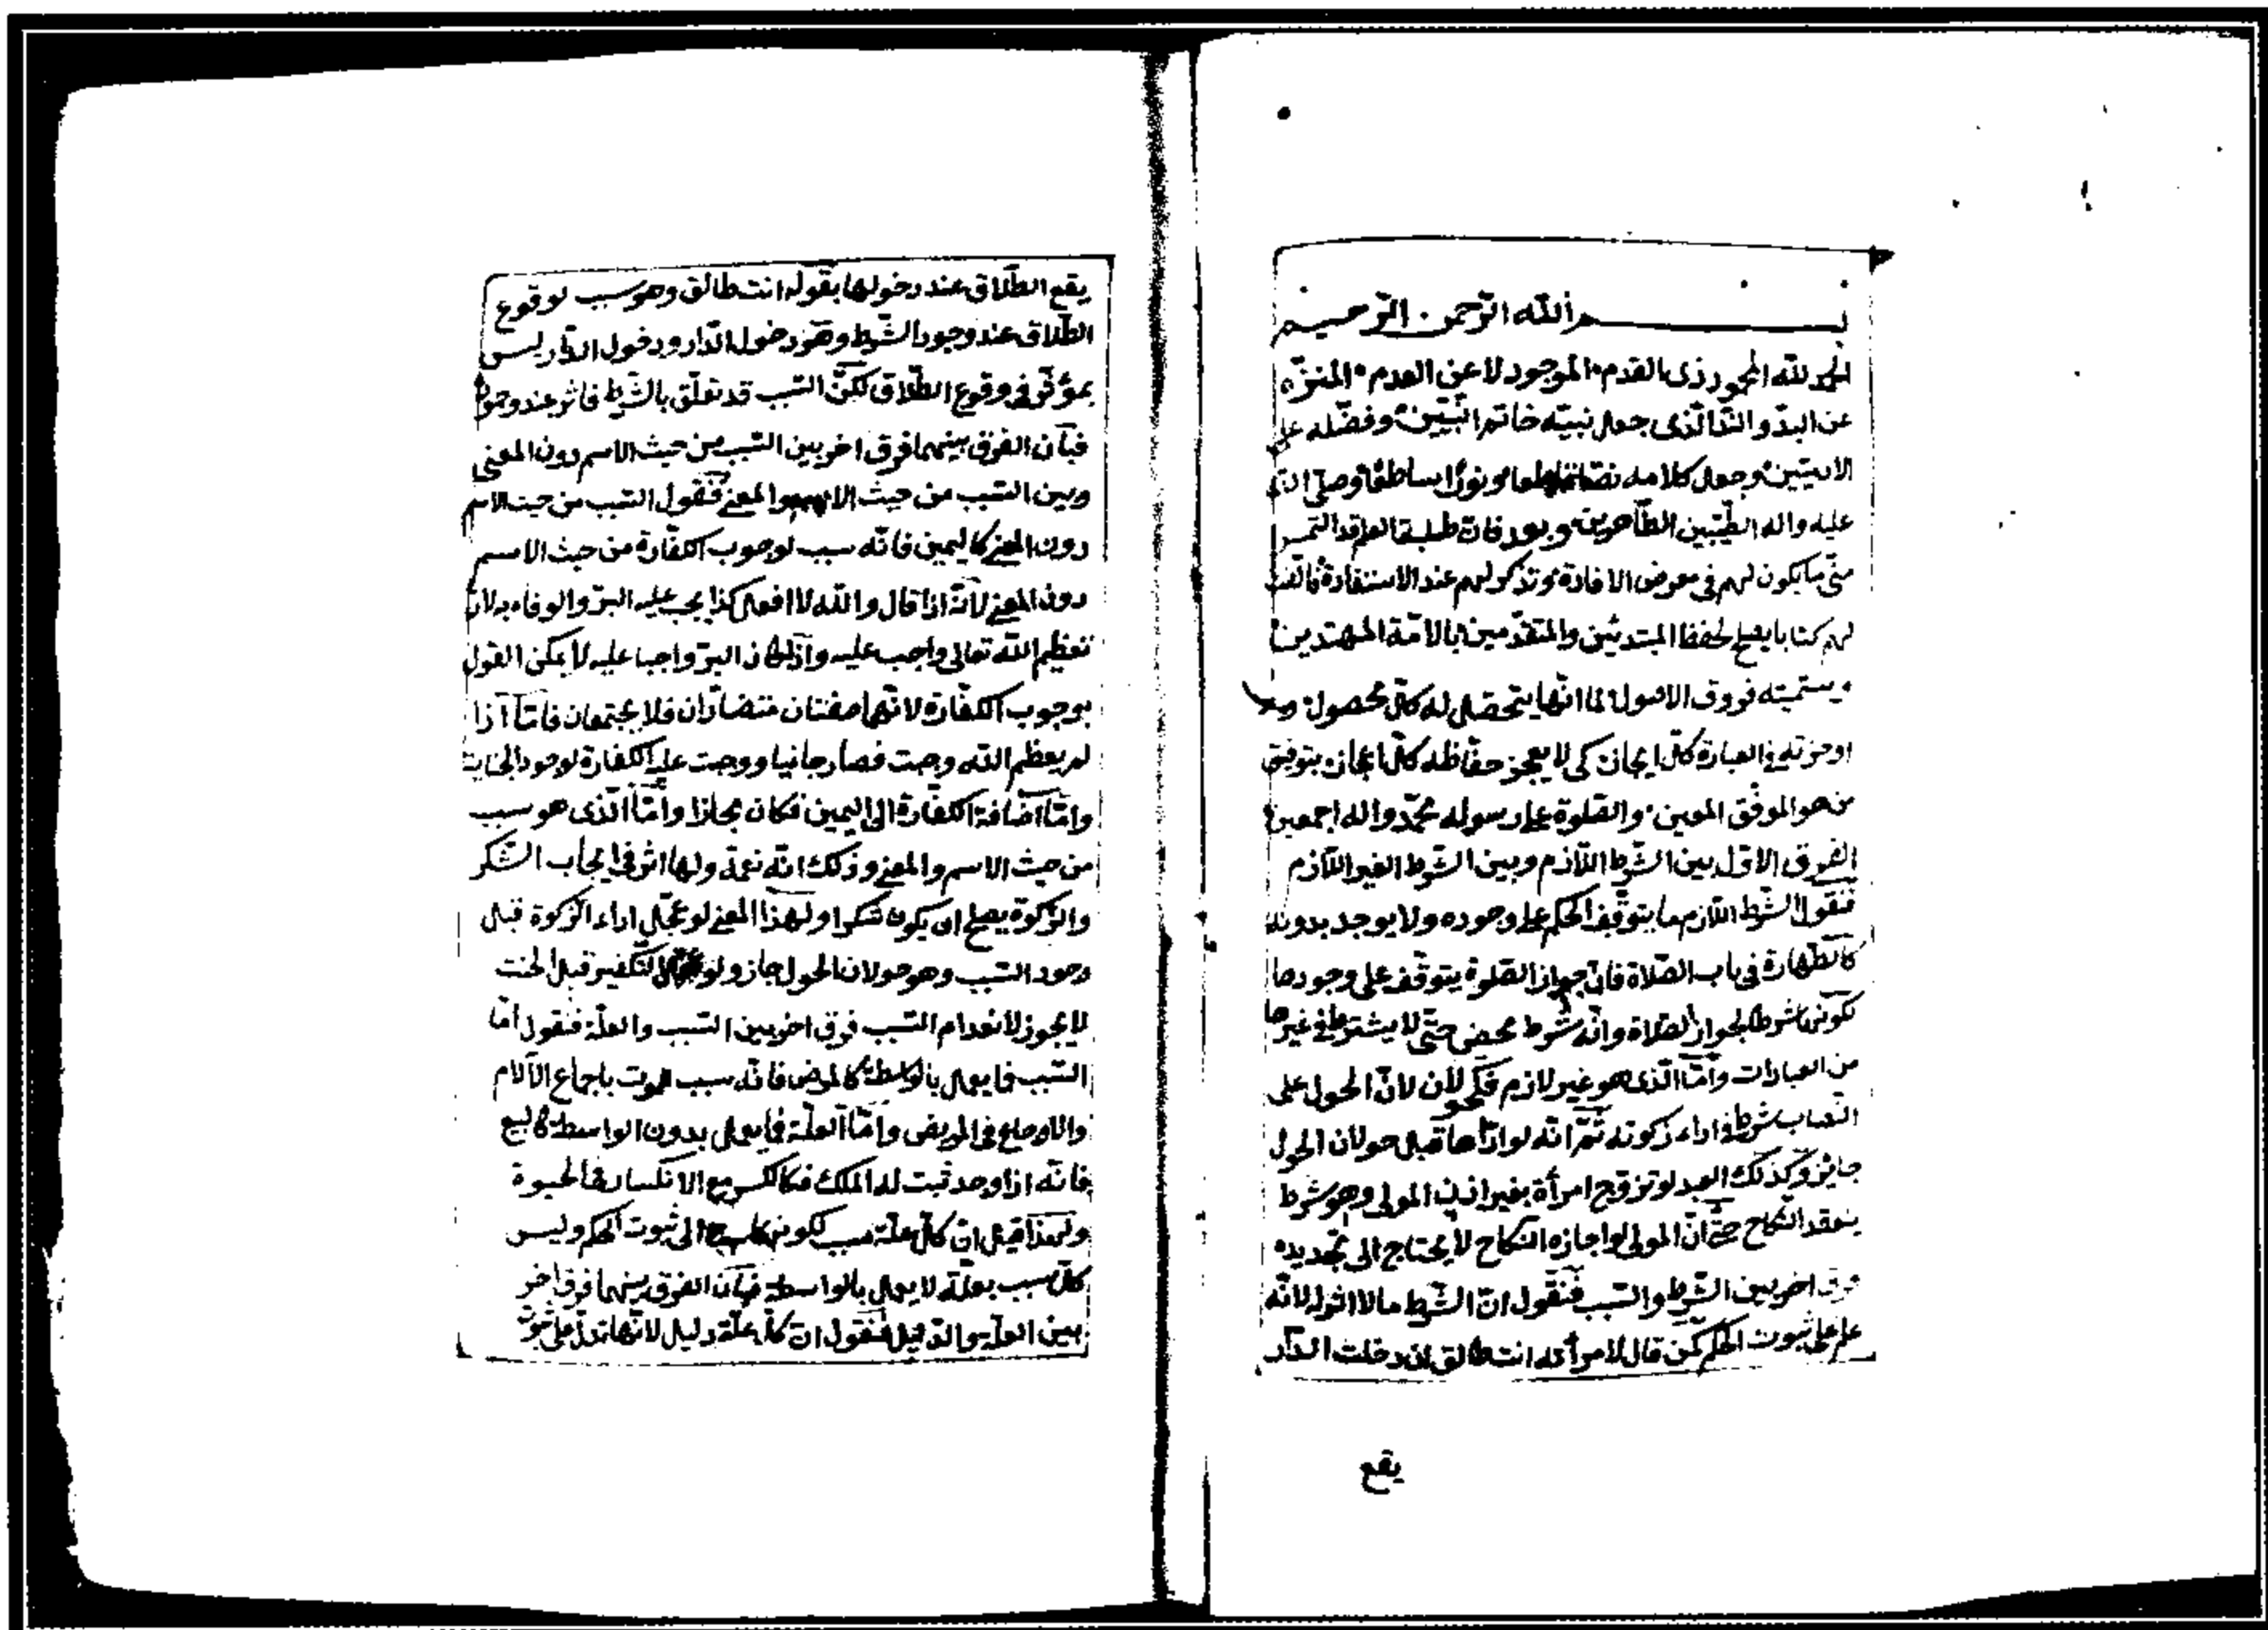 بسم الله الرّحمن الرّحيم
الحمد لله المحمود ذى القدم الموجود لا عن العدم المنزّه
عن البدّ و الندّ الّذى جعل نبيّه خاتم النّبيّين وفضّله على
وجعل كلامه نصّا قاطعا ونورا ساطعا وصلّى الله
عليه واله الطّيّبين الطّاهرين وبعد فانّ طلبة العلم قد التمسوا
منّى ما يكون لهم فى معرض الافادة وتذكر لهم عند الاستفادة فالّفت
لهم كتابا يصلح لحفظ المبتدئين والمتقدّمين بالامّة المهتدين
وسمّيته فروق الاصول لما انّها يتحصّل له كلّ محصول
اوجزته فى العبارة كلّ ايجاز كى لا يعجز حفّاظه كلّ اعجاز بتوفيق
من هو الموفّق المعين والصّلوة على رسوله محمّد واله اجمعين
الفرق الاوّل بين الشّرط اللّازم وبين الشّرط الغير اللّازم
فنقول الشّرط اللّازم ما يتوقّف الحكم على وجوده ولا يوجد بدونه
كالطّهارة فى باب الصّلاة فانّ جواز الصّلوة يتوقّف على وجودها
لكونها شرطا لجواز الصّلاة وانّه شرط محض حتّى لا يشترط فى غيرها
من العبادات وامّا الّذى هو غير لازم فكحولان لانّ الحول على
النّصاب شرط فى اداء زكوته ثمّ انّه لو ادّاها قبل حولان الحول
جايز وكذلك العبد لو تزوّج امرأة بغير اذن المولى وهو شرط
ينعقد النّكاح حتّى انّ المولى لو اجازه النّكاح لا يحتاج الى تجديده
فرق اخر بين الشّرط والسّبب فنقول انّ الشّرط ما لا اثر له لانّه
علم على ثبوت الحكم كمن قال لامرأته انت طالق ان دخلت الدّار
يقع
يقع الطّلاق عند دخولها بقوله انت طالق وهو سبب لوقوع
الطّلاق عند وجود الشّرط وهو دخول الدّار ودخول الدّار ليس
بمؤثّر فى وقوع الطّلاق لكنّ السّبب قد تعلّق بالشّرط فاثّر عند وجوده
فبان الفرق بينهما فرق اخر بين السّبب من حيث الاسم دون المعنى
وبين السّبب من حيث الاسم والمعنى فنقول السّبب من حيث الاسم
دون المعنى كاليمين فانّه سبب لوجوب الكفّارة من حيث الاسم
دون المعنى لانّه اذا قال والله لا افعل كذا يجب عليه البرّ والوفاء به لانّ
تعظيم الله تعالى واجب عليه واذا كان البرّ واجبا عليه لا يمكن القول
بوجوب الكفّارة لانّهما صفتان متضادّان فلا يجتمعان فامّا اذا
لم يعظم الله وجبت فصار جانيا ووجبت عليه الكفّارة لوجود الجناية
وامّا اضافة الكفّارة الى اليمين فكان مجازا وامّا الّذى هو سبب
من حيث الاسم والمعنى وذلك انّه نعمة ولها اثر فى ايجاب الشّكر
والزّكوة يصلح ان يكون شكرا ولهذا المعنى لو عجّل اداء الزّكوة قبل
وجود السّبب وهو حولان الحول جاز ولو عجّل التّكفير قبل الحنث
لا يجوز لانعدام السّبب فرق اخر بين السّبب والعلّة فنقول امّا
السّبب فما يعمل بالواسطة كالمرض فانّه سبب الموت باجماع الآلام
والاوجاع فى المريض وامّا العلّة فما يعمل بدون الواسطة كالبيع
فانّه اذا وجد ثبت له الملك فكالكسر مع الانكسار
ولهذا قيل انّ كلّ علّة سبب لكونها الى ثبوت الحكم وليس
كلّ سبب بعلّة لا يعمل بالواسطة فبان الفرق بينهما فرق اخر
بين العلّة والدّليل فنقول انّ كلّ علّة دليل لانّها تدلّ على ثبوت